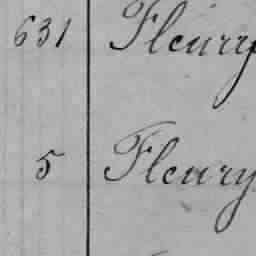 631 Fleury
5 Fleury